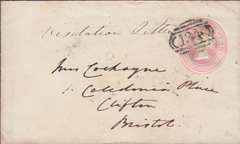 Visitation Letter
Mrs Cockayne
1. Caledonia Place
Clifton
Bristol.